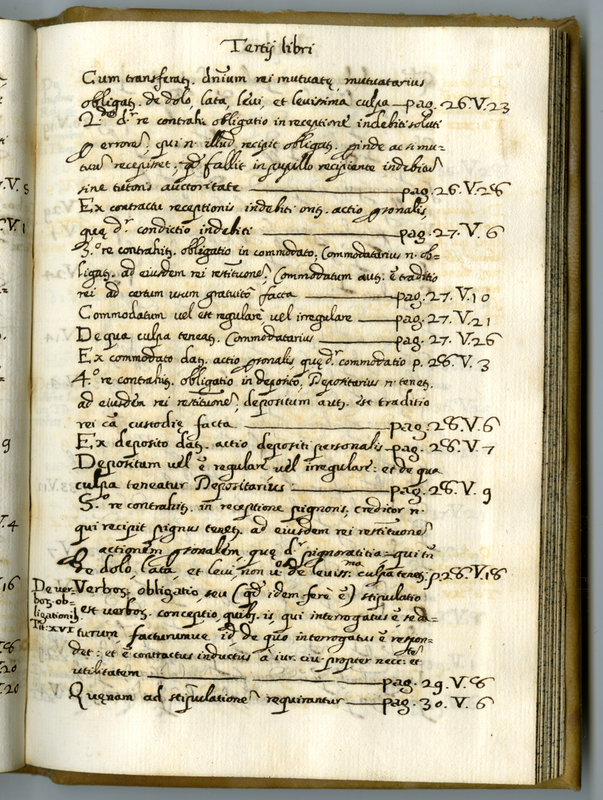 Tertij libri
Cum transferatz. dnium rei mutuatę mutuatarius
obligatz. de dolo, lata, levi, et levissima culpa — pag. 26. V. 23
2.º dr. re contrahi obligatio in receptione indebiti soluti
p errore, qui n. illud recipit obligatz. perinde ac si mu-
tuũ recepisset, qd fallit in pupillo recipiente indebitũ
sine tutoris auctoritate — pag. 26. V. 28
Ex contractu receptionis indebiti onz. actio psonalis,
quę dr. condictio indebiti — pag. 27. V. 6
3.º re contrahitz. obligatio in commodato, Commodatarius n. ob-
ligatz. ad eiusdem rei restitutione, Commodatum autz. ē traditio
rei ad certum usum gratuito facta — pag. 27. V. 10
Commodatum vel est regulare vel irregulare — pag. 27. V. 21
De qua culpa teneatz. Commodatarius — pag. 27. V. 26
Ex commodato datz. actio psonalis quę dr. commodatio p. 28. V. 3
4.º re contrahitz. obligatio in deposito, Depositarius n. tenetz.
ad eiusdem rei restitutione, depositum autz. est traditio
rei cã custodię facta — pag. 28. V. 6
Ex deposito datz. actio depositi personalis — pag. 28. V. 7
Depositum vel ē regulare vel irregulare: et de qua
culpa teneatur Depositarius — pag. 28. V. 9
5.º re contrahitz. in receptione pignoris, creditor n.
qui recipit pignus tenetz. ad eiusdem rei restitutione
p actionem psonalem quę dr. pignoratitia - qui tn
de dolo, lata, et levi, non v.º de leviss.ma culpa tenetz. p 28. V. 18
De ver-
boz. ob-
ligationib.
Tit: XVI
Verboz. obligatio seu (qd idem fere ē) stipulatio
est verboz. conceptio quibz. is, qui interrogatus ē se da-
turum, facturumve id de quo interrogatus ē respon-
det: et ē contractus inductus a iur. civ. propter necc.te et
utilitatem — pag. 29. V. 8
Quęnam ad stipulatione requirantur — pag. 30. V. 6